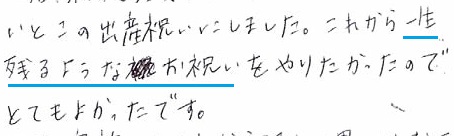 いとこの出産祝いにしました。これから一生
残るようなお祝いをやりたかったので
とてもよかったです。